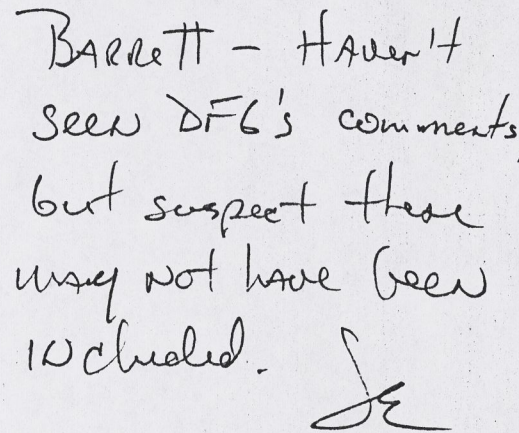 Barrett - Haven't
seen DFG's comments,
but suspect these
may not have been
included.